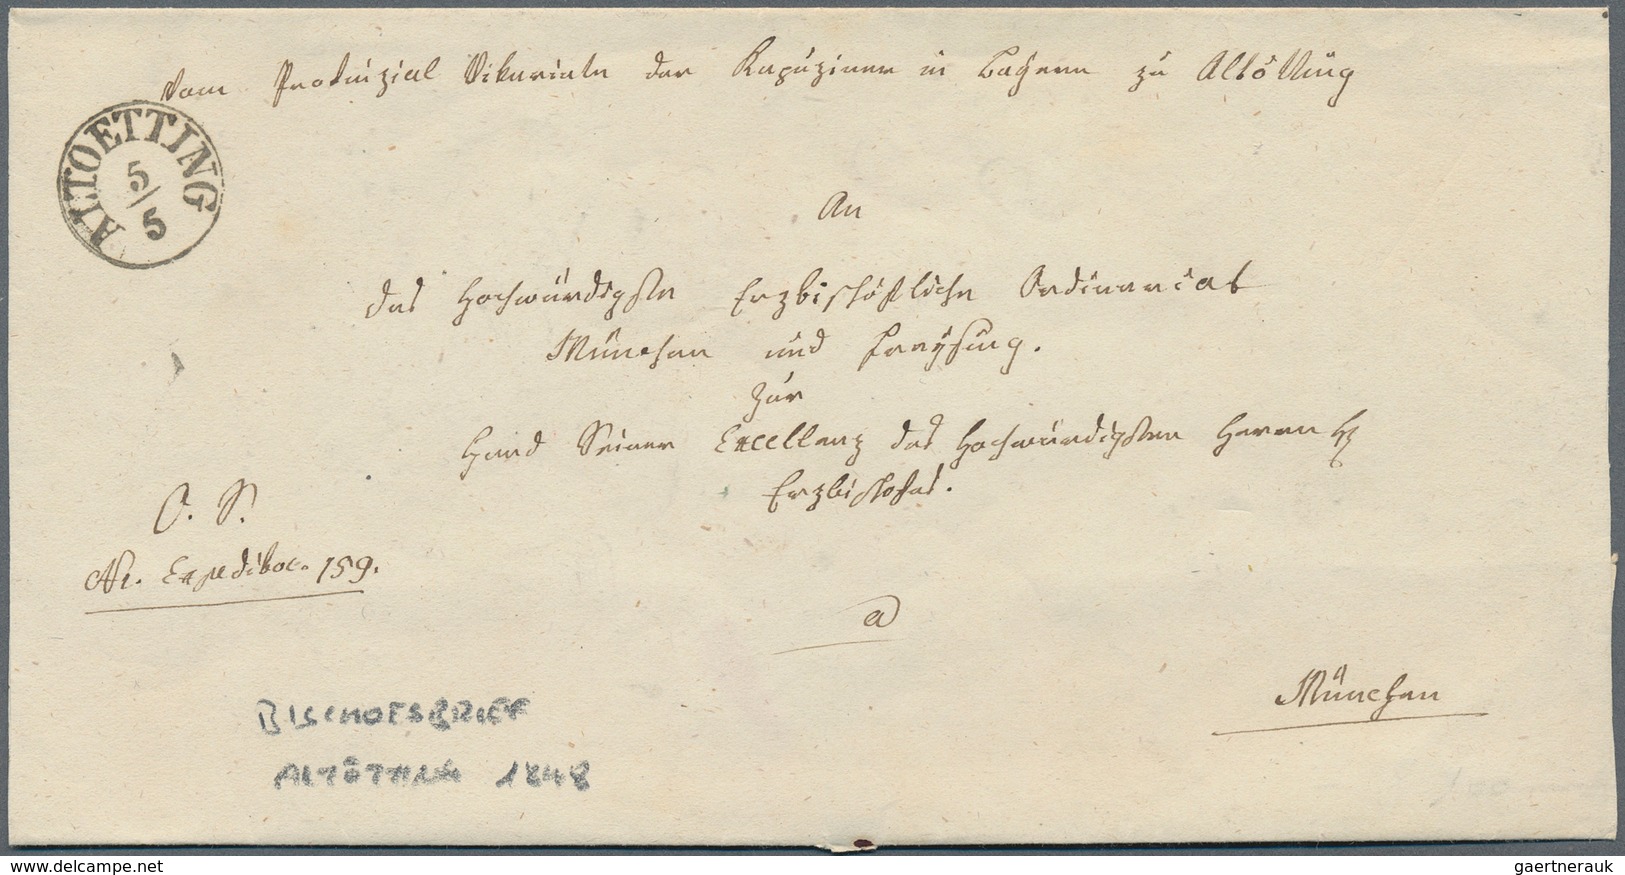 Vom Provinzial Vikariate der Kapuziner in Bayern zu Altötting
ALTOETTING
5/5
An
das Hochwürdigste Erzbischöfliche Ordinariat
München und Freysing.
Zur
Hand Seiner Excellenz des Hochwürdigsten Herrn H
Erzbischofes.
O. S.
Nr. Expeditos. 159.
a
München
BISCHOFSBRIEF
ALTÖTTING 1848
www.delcampe.net
gaertnerauk